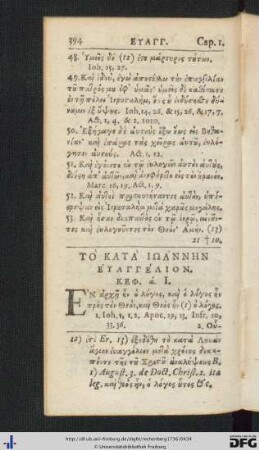 394 ΕΥΑΓΓ. Cap. 1.
48. Ὑμεῖς δέ (12) ἐστε μάρτυρες τούτων.
Joh. 15, 27.
49. Καὶ ἰδοὺ, ἐγὼ ἀποστέλλω τὴν ἐπαγγελίαν
τοῦ πατρός μου ἐφ' ὑμᾶς· ὑμεῖς δὲ καθίσατε
ἐν τῇ πόλει Ἱερουσαλὴμ, ἕως οὗ ἐνδύσησθε δύνα-
μιν ἐξ ὕψους. Joh. 14, 26. & 15, 26. & 17, 7.
Act. 1, 4. & 2,
50. Ἐξήγαγε δὲ αὐτοὺς ἔξω ἕως εἰς Βηθα-
νίαν· καὶ ἐπάρας τὰς χεῖρας αὐτοῦ, εὐλό-
γησεν αὐτούς. Act. 1, 12.
51. Καὶ ἐγένετο ἐν τῷ εὐλογεῖν αὐτὸν αὐτοὺς,
διέστη ἀπ' αὐτῶν, καὶ ἀνεφέρετο εἰς τὸν οὐρανόν.
Marc. 16, 19. Act. 1, 9.
52. Καὶ αὐτοὶ προσκυνήσαντες αὐτὸν, ὑπέ-
στρεψαν εἰς Ἱερουσαλὴμ μετὰ χαρᾶς μεγάλης.
53. Καὶ ἦσαν διαπαντὸς ἐν τῷ ἱερῷ, αἰνοῦν-
τες καὶ εὐλογοῦντες τὸν Θεόν· Ἀμήν. (13)
21 † 10.
ΤΟ ΚΑΤΑ ΙΩΑΝΝΗΝ
ΕΥΑΓΓΕΛΙΟΝ.
ΚΕΦ. α. I.
ΕΝ ἀρχῇ ἦν ὁ λόγος, καὶ ὁ λόγος ἦν
πρὸς τὸν Θεὸν, καὶ Θεὸς ἦν (1) ὁ λόγος.
1. Joh. 1, 1. 2. Apoc. 19, 13. Infr. 10,
33. 36. 2. Οὗ-
12) 13) ἐξεδόθη τὸ κατὰ Λουκᾶν
μετὰ χρόνους
τῆς τοῦ Χριστοῦ ἀναλήψεως
1) August. 3. de Doct. Christ. 2. ita
leg. καὶ Θεὸς ἦν, ὁ λόγος οὗτος &c.
http://dl.ub.uni-freiburg.de/diglit/rechenberg1736/0434
© Universitätsbibliothek Freiburg
gefördert durch die DFG